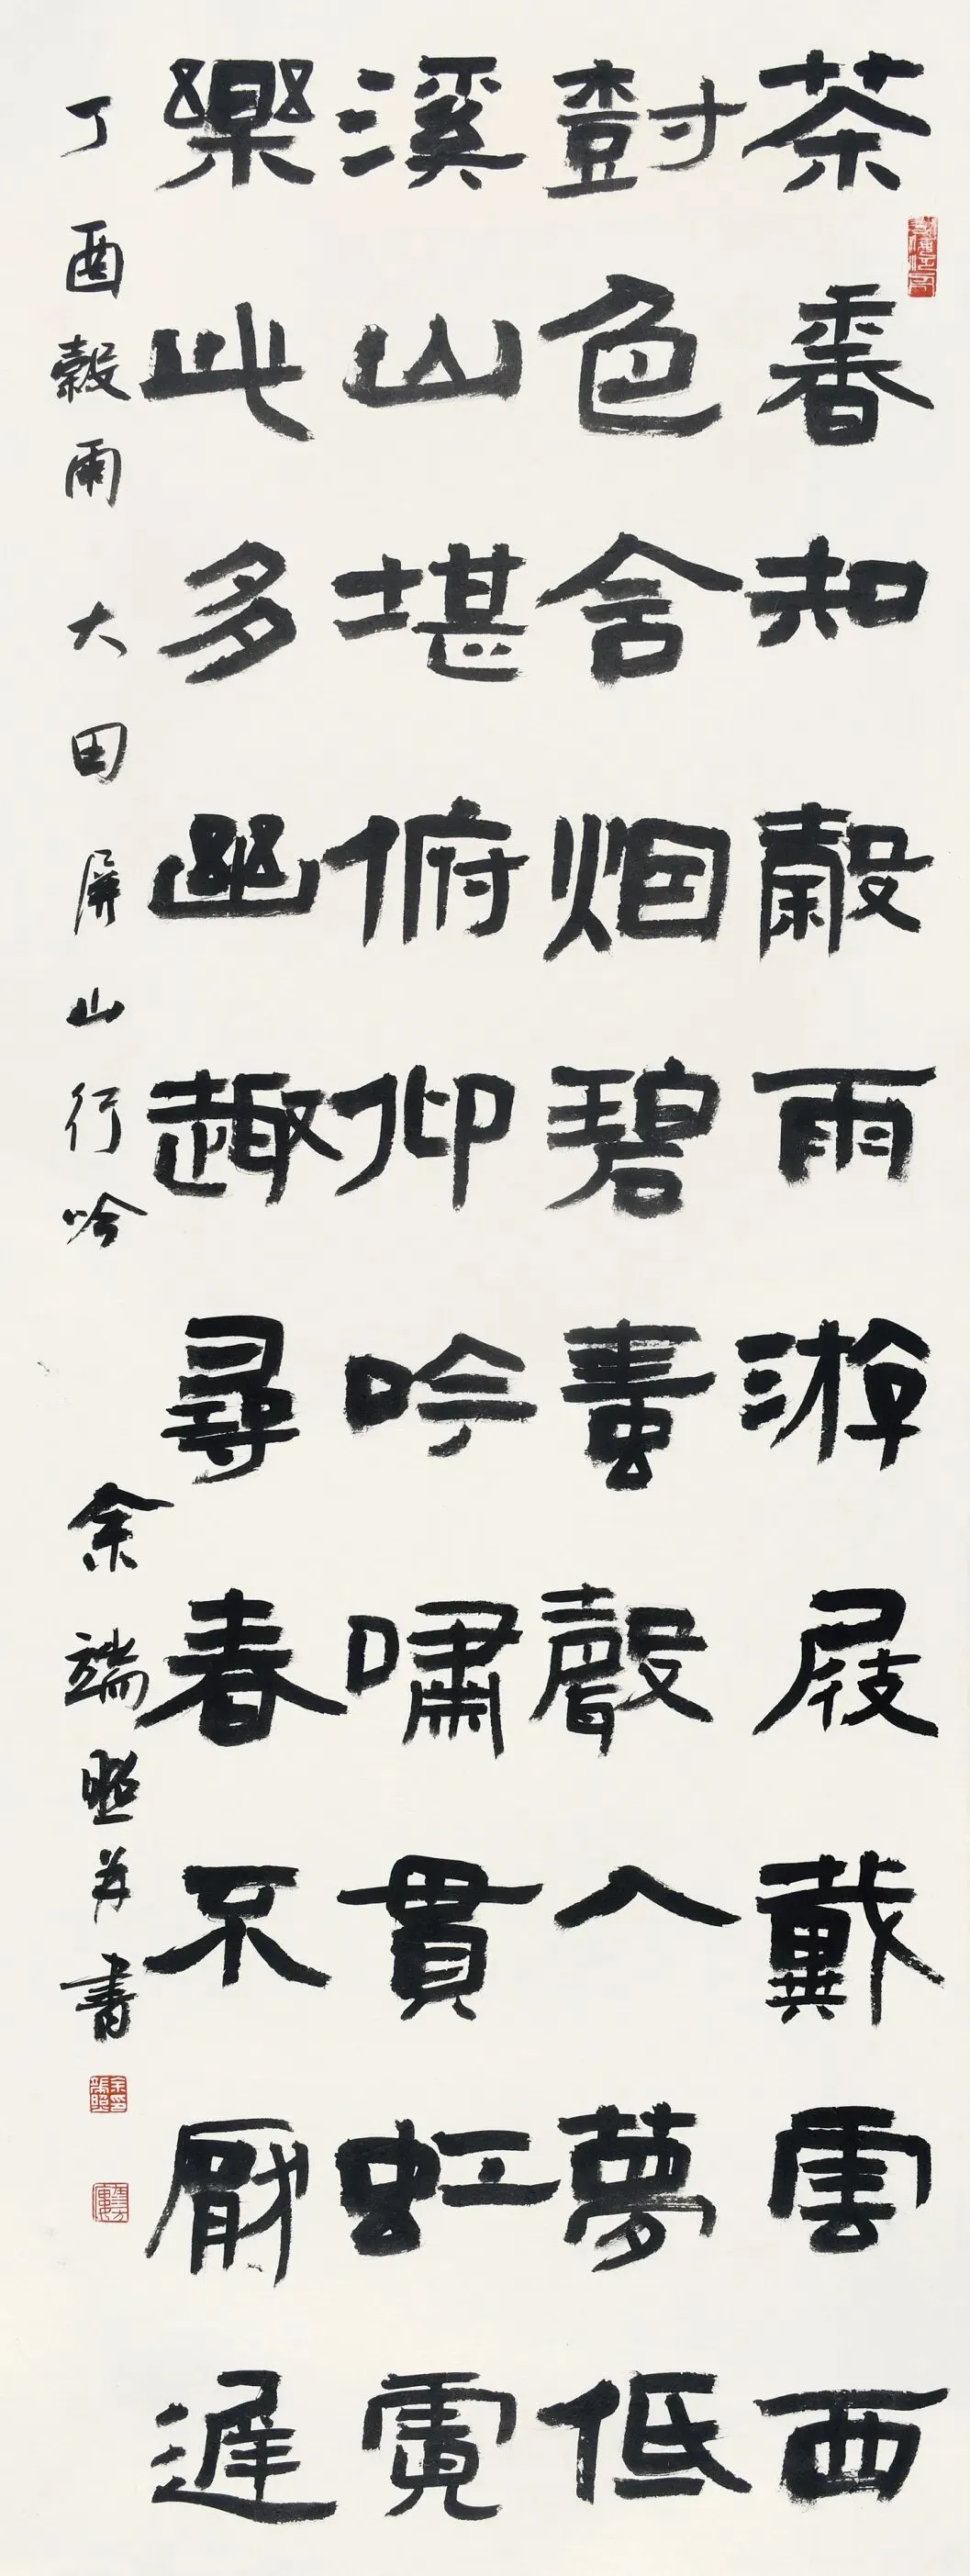 茶香知穀雨游屐戴雲西
樹色含烟碧蛙聲入夢低
溪山堪俯仰吟嘯貫虹霓
樂此多幽趣尋春不厭遲
丁酉穀雨大田屏山行吟 余端照并書